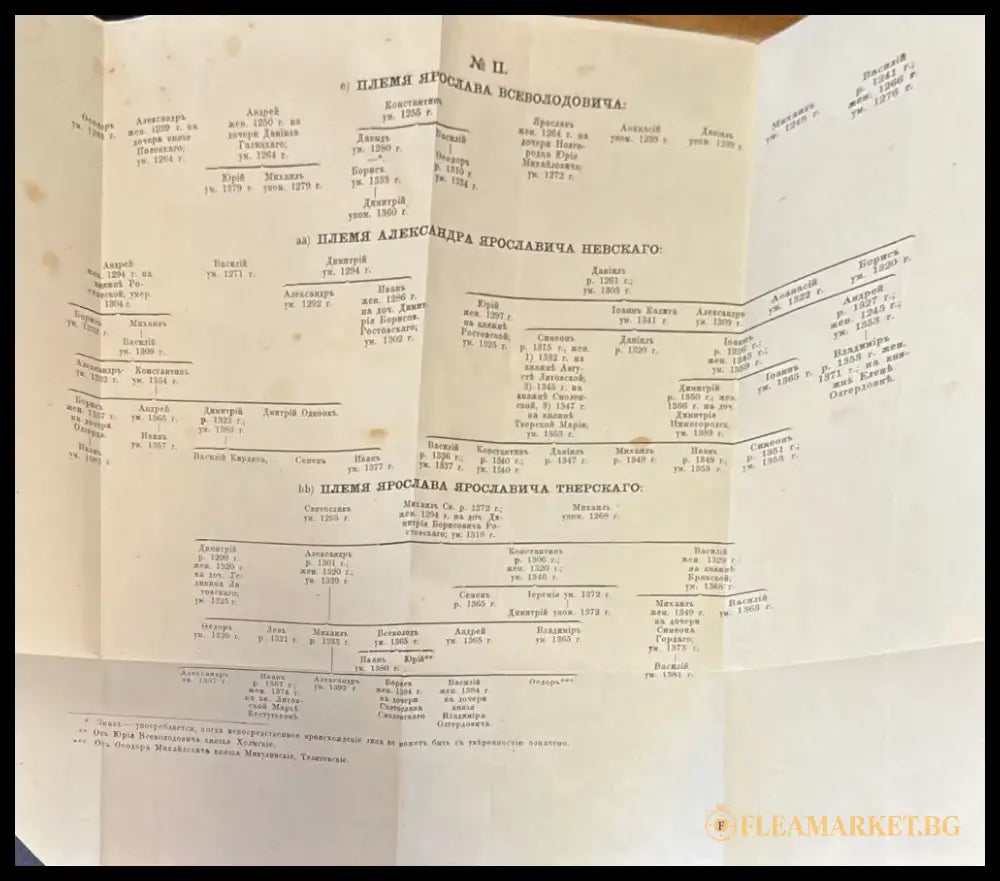 № II.
е) ПЛЕМЯ ЯРОСЛАВА ВСЕВОЛОДОВИЧА:
Ѳеодоръ
Александръ
жен. 1239 г. на
дочери князя
Полоцкаго;
ум. 1264 г.
Андрей
жен. 1250 г. на
дочери Даніила
Галицкаго;
ум. 1264 г.
Юрій
ум. 1279 г.
Михаилъ
упом. 1279 г.
Константинъ
ум. 1255 г.
Давыдъ
ум. 1280 г.
—*.
Борисъ
ум. 1333 г.
Димитрій
упом. 1360 г.
Василій
Ѳеодоръ
р. 1310 г.
ум. 1334 г.
Ярославъ
жен. 1264 г. на
дочери Новго-
родца Юрія
Михайловича;
ум. 1272 г.
Аѳанасій
упом. 1239 г.
Даніилъ
упом. 1239 г.
Михаилъ
ум. 1248 г.
Василій
р. 1241 г.;
жен. 1266 г.
ум. 1276 г.
аа) ПЛЕМЯ АЛЕКСАНДРА ЯРОСЛАВИЧА НЕВСКАГО:
Андрей
жен. 1294 г. на
княжнѣ Ро-
стовской; умер.
1304 г.
Борисъ
Михаилъ
Василій
ум. 1309 г.
Александръ
ум. 1332 г.
Константинъ
ум. 1354 г.
Борисъ
жен. 1357 г.
на дочери
Олгерда.
Иванъ
Андрей
ум. 1365 г.
Иоанъ
ум. 1357 г.
Димитрій
р. 1322 г.;
ум. 1383 г.
Дмитрій Одноок.
Василій Кирдяпа,
Семенъ
Иванъ
ум. 1377 г.
Василій
ум. 1271 г.
Димитрій
ум. 1294 г.
Александръ
ум. 1292 г.
Иванъ
жен. 1286 г.
на доч. Дмит-
рія Борисов.
Ростовскаго;
ум. 1302 г.
Даніилъ
р. 1261 г.;
ум. 1303 г.
Юрій
жен. 1297 г.
на княжнѣ
Ростовской;
ум. 1325 г.
Іоаннъ Калита
ум. 1341 г.
Александръ
ум. 1309 г.
Аѳанасій
ум. 1322 г.
Борисъ
ум. 1320 г.
Симеонъ
р. 1315 г., жен.
1) 1332 г. на
княжнѣ Авгу-
стѣ Литовской;
2) 1345 г. на
княжнѣ Смолен-
ской, 3) 1347 г.
на княжнѣ
Тверской Маріи;
ум. 1353 г.
Даніилъ
р. 1320 г.
Іоаннъ
р. 1326 г.;
жен. 1345 г.;
ум. 1359 г.
Андрей
р. 1327 г.;
жен. 1245 г.;
ум. 1353 г.
Димитрій
р. 1350 г.; жен.
1366 г. на доч.
Димитрія
Нижегородск.
ум. 1389 г.
Іоаннъ
ум. 1365 г.
Владиміръ
р. 1353 г. жен.
1371 г.; на кня-
жнѣ Еленѣ
Олгердовнѣ.
Василій
р. 1336 г.;
ум. 1337 г.
Константинъ
р. 1340 г.;
ум. 1340 г.
Даніилъ
р. 1347 г.
Михаилъ
р. 1348 г.
Иванъ
р. 1349 г.;
ум. 1353 г.
Симеонъ
р. 1351 г.;
ум. 1353 г.
bb) ПЛЕМЯ ЯРОСЛАВА ЯРОСЛАВИЧА ТВЕРСКАГО:
Святославъ
ум. 1265 г.
Михаилъ Св. р. 1272 г.;
жен. 1294 г. на доч. Ди-
митрія Борисовича Ро-
стовскаго; ум. 1318 г.
Михаилъ
упом. 1268 г.
Димитрій
р. 1299 г.
жен. 1320 г.
на доч. Ге-
димина Ли-
товскаго;
ум. 1325 г.
Александръ
р. 1301 г.;
жен. 1320 г.;
ум. 1339 г.
Константинъ
р. 1306 г.;
жен. 1320 г.;
ум. 1346 г.
Василій
жен. 1329 г.;
на княжнѣ
Брянской;
ум. 1368 г.
Семенъ
р. 1365 г.
Іеремія ум. 1372 г.
Димитрій упом. 1372 г.
Михаилъ
жен. 1349 г.
на дочери
Симеона
Гордаго;
ум. 1373 г.
Василій
ум. 1382 г.
Василій
ум. 1363 г.
Ѳедоръ
ум. 1339 г.
Левъ
р. 1321 г.
Михаилъ
р. 1333 г.
Всеволодъ
ум. 1365 г.
Андрей
ум. 1365 г.
Владиміръ
ум. 1365 г.
Иванъ
ум. 1380 г.
Юрій**
Александръ
Иванъ
р. 1357 г.;
жен. 1374 г.
на кн. Литов-
ской Марьѣ
Кестутьевнѣ
Александръ
Борисъ
жен. 1384 г.
на дочери
Святослава
Смоленскаго
Василій
жен. 1384 г.
на дочери
князя
Владиміра
Олгердовича.
Ѳедоръ***
* Знакъ— употребляется, когда непосредственное происхожденіе лицъ не можетъ быть съ увѣренностью означено.
** Отъ Юрія Всеволодовича князья Холмскіе.
*** Отъ Ѳеодора Михайловича князья Микулинскіе, Телятевскіе.
FLEAMARKET.BG